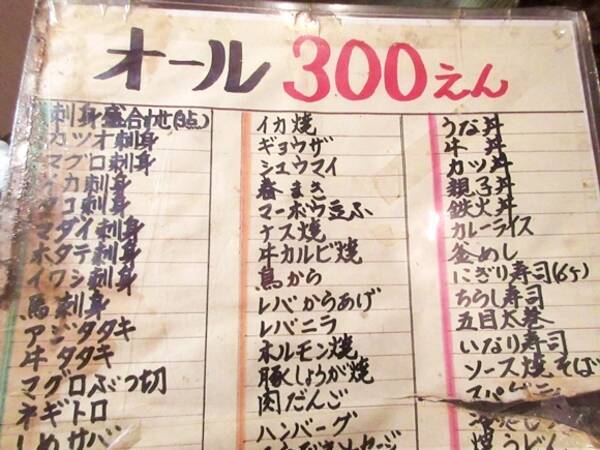 オール 300えん
刺身盛合わせ(3点)
カツオ刺身
マグロ刺身
イカ刺身
タコ刺身
マダイ刺身
ホタテ刺身
イワシ刺身
馬刺身
アジタタキ
牛タタキ
マグロぶつ切
ネギトロ
しめサバ
イカ焼
ギョウザ
シュウマイ
春まき
マーボウ豆ふ
ナス焼
牛カルビ焼
鳥から
レバからあげ
レバニラ
ホルモン焼
豚しょうが焼
肉だんご
ハンバーグ
うな丼
牛丼
カツ丼
親子丼
鉄火丼
カレーライス
釜めし
にぎり寿司(6ヶ)
ちらし寿司
五目太巻
いなり寿司
ソース焼そば
焼うどん